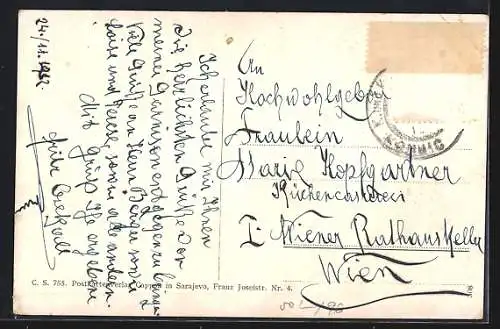 24/11. 1912
Ich erlaube mir Ihnen
die herzlichsten Grüße von
meiner Garnison entgegenzubringen
Viele Grüße an Herrn Berger sowie
Loise und Therese, sowie alle anderen.
Mit Gruß Ihr ergebener
Fritz
An
Hochwohlgeboren
Fräulein
Marie Kopfgartner
Küchencassierin
I. Wiener Rathauskeller
Wien
KONJIC
C. S. 755. Postkartenverlag in Sarajevo, Franz Josefstr. Nr. 4.